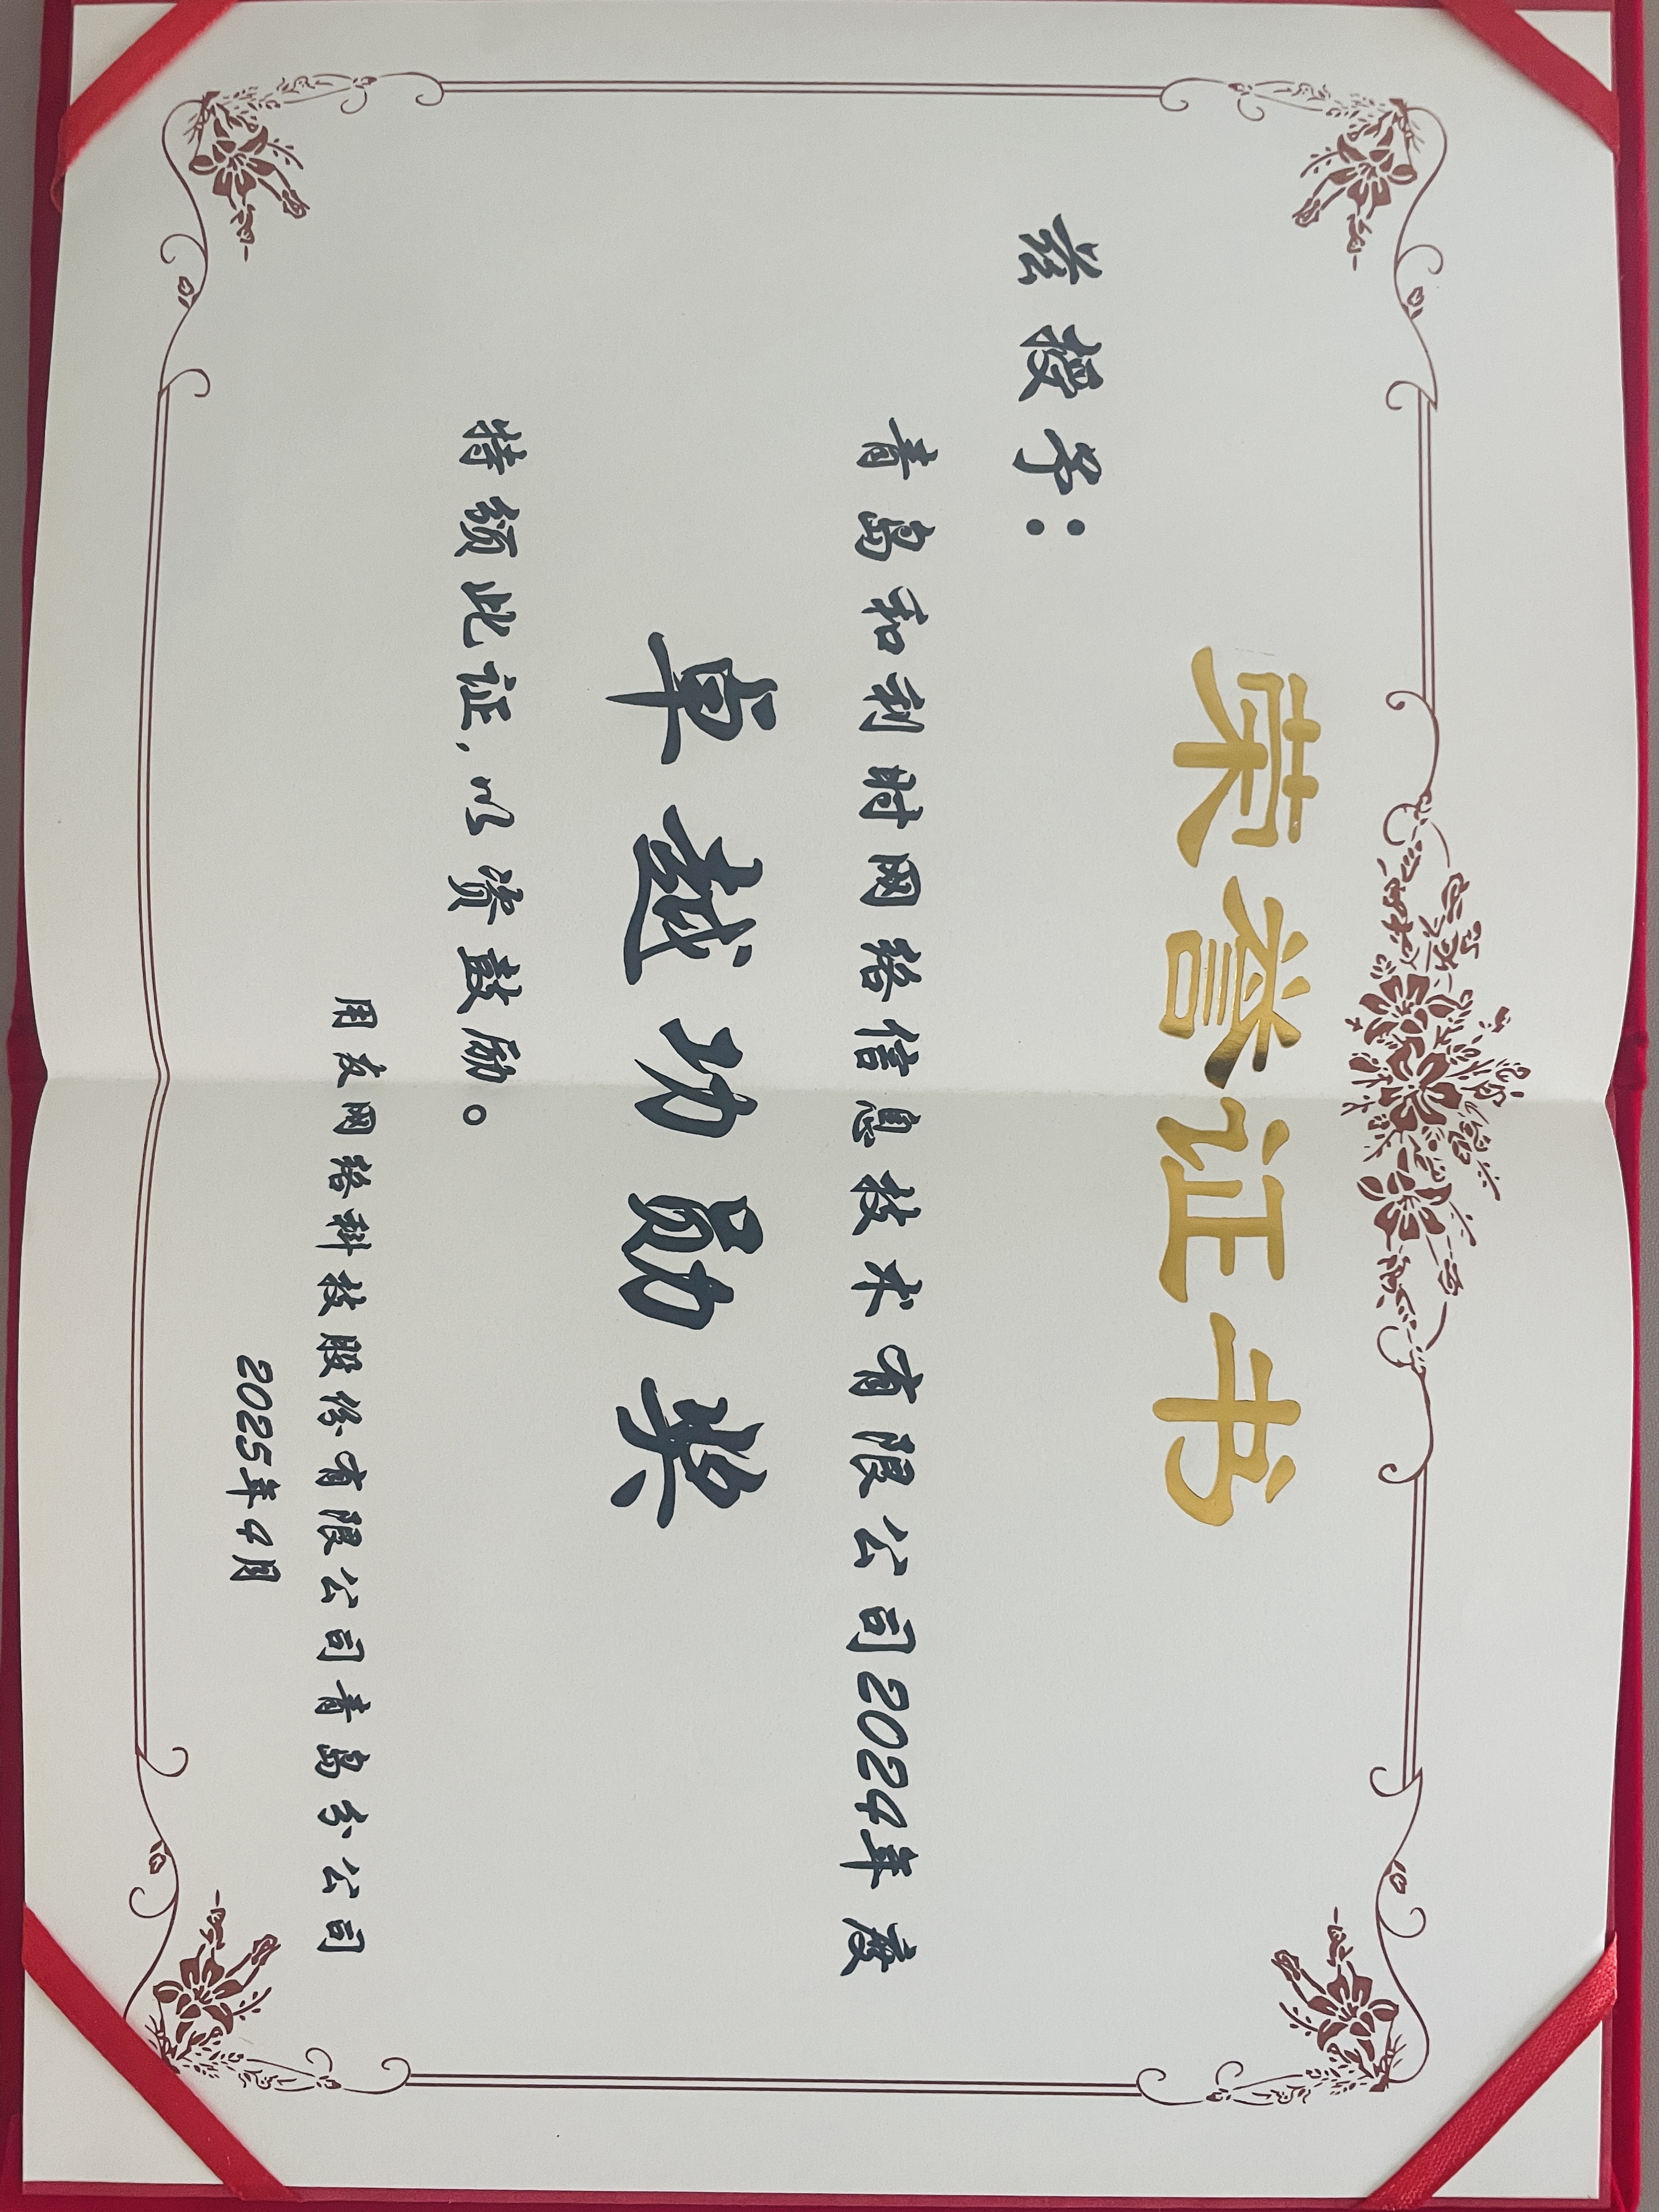 荣誉证书
兹授予：
青岛和利时网络信息技术有限公司2024年度
卓越功勋奖
特颁此证，以资鼓励。
用友网络科技股份有限公司青岛分公司
2025年4月